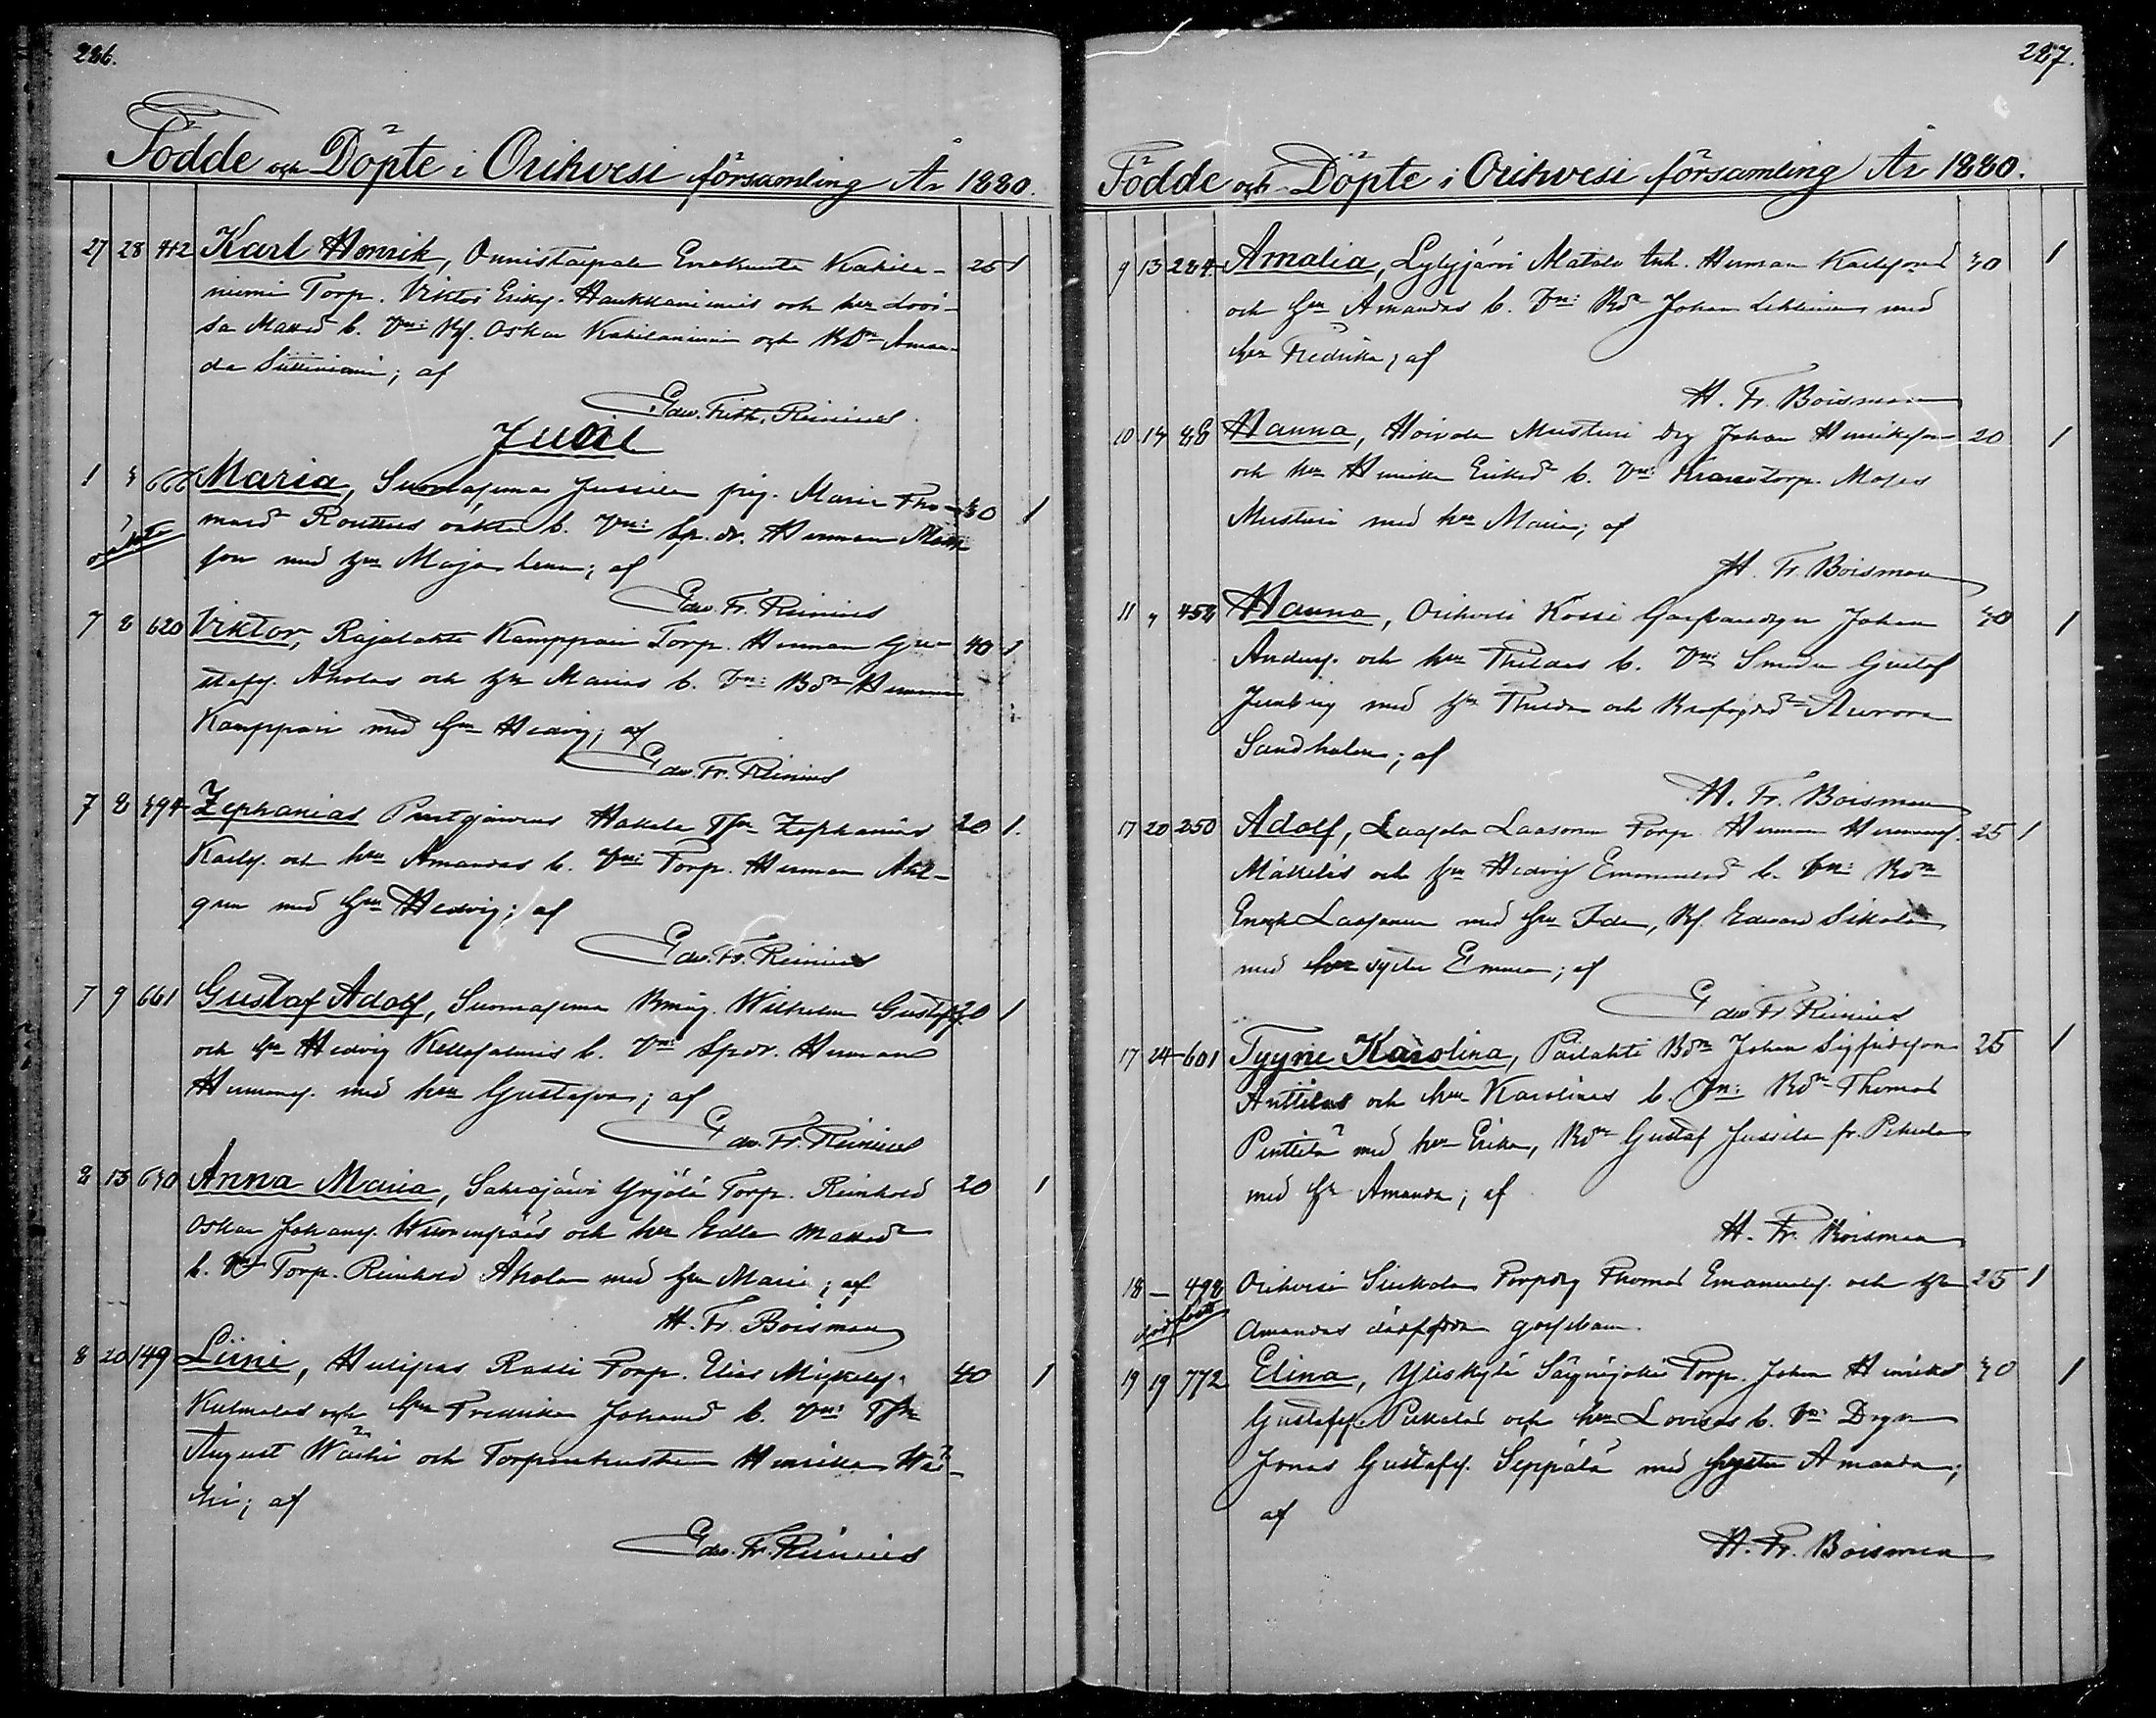 226.
Födde och Döpte i Orihvesi församling År 1880.
27 28 412 Karl Henrik, Onnistaipale Enokunta Kakila- 25 1
niemi Torp. Viktor Eriks. Haukkaniemis och hu Lovi-
sa Mattsd b. Vn: Bf. Oskar Kakilaniemi och Bdn Aman-
da ; af
Edw. Frith. Reinius
Juni
1 3 666 Maria, Suomasema Jussila pig. Maria Tho- 30 1
masd Routtus oäkta b. Vn: Sp. dr. Herman Matts
son med hu Maja Lena; af
oäkta
Edw. Fr. Reinius
7 8 620 Viktor, Rajalahti Kamppari Torp. Herman Gu- 40 1
stafs. Aholas och hu Marias b. Vn: Bdn Herman
Kamppari med hu Hedvig; af
Edw. Fr. Reinius
7 8 394 Zephanias Hakala Zephanias 20 1.
Karls. och hu Amandas b. Vn: Torp. Herman Ahl-
gren med hu Hedvig; af
Edw. Fr. Reinius
7 9 661 Gustaf Adolf, Suomasema Wilhelm Gustafs. 20 1
och hu Hedvig b. Vn: Spdr. Herman
Hermans. med hu Gustafva; af
Edw. Fr. Reinius
8 13 630 Anna Maria, Sahrajärvi Yrjölä Torp. Reinhold 20 1
Oskar Johans. och hu Edla Mattsd
b. Vn: Torp. Reinhold Ahola med hu Maria; af
H. Fr. Boisman
8 20 149 Liini, Rasti Torp. Elias 40 1
Kulmalas och hu Fredrika Johansd b. Vn:
August Wäähi och Torparehustrun Henrika Wää-
hi; af
Edw. Fr. Reinius
227.
Födde och Döpte i Orihvesi församling År 1880.
9 13 284 Amalia, Lylyjärvi Matala Inh. Herman Karlssons 30 1
och hu Amandas b. Vn: Bdn Johan Lehtinen med
hu Fredrika; af
H. Fr. Boisman
10 14 88 Hanna, Hoivala Musturi Drg Johan Henriksson 20 1
och hu Henrika Eriksd b. Vn: Moses
Musturi med hu Maria; af
H. Fr. Boisman
11 " 458 Hanna, Orihvesi Kossi Johan 30 1
Anders. och hu Thildas b. Vn: Smeden Gustaf
med hu Thilda och Aurora
Sandholm; af
H. Fr. Boisman
17 20 250 Adolf, Laasola Laasonen Torp. Herman Hermans. 25 1
Mäkeläs och hu Hedvig Emanuelsd b. Vn: Bdn
Enok Laasonen med hu Ida, Bf. Edvard Sikala
med syster Emma; af
Edw. Fr. Reinius
17 24 601 Tyyne Karolina, Päilahti Bdn Johan Sigfridsson 25 1
Anttilas och hu Karolinas b. Vn: Bdn Thomas
Penttilä med hu Erika, Bdn Gustaf Jussila fr. Pehula
med hu Amanda; af
H. Fr. Boisman
18 — 498 Orihvesi Torpdrg Thomas Emanuels. och hu 25 1
Amandas dödfödda gossebarn.
dödfödt
19 19 772 Elina, Yliskylä Särjinjoki Torp. Johan Henrik 30 1
Gustafs. Pukalas och hu Lovisas b. Vn: Drgn
Jonas Gustafs. Seppälä med syster Amanda;
af
H. Fr. Boisman